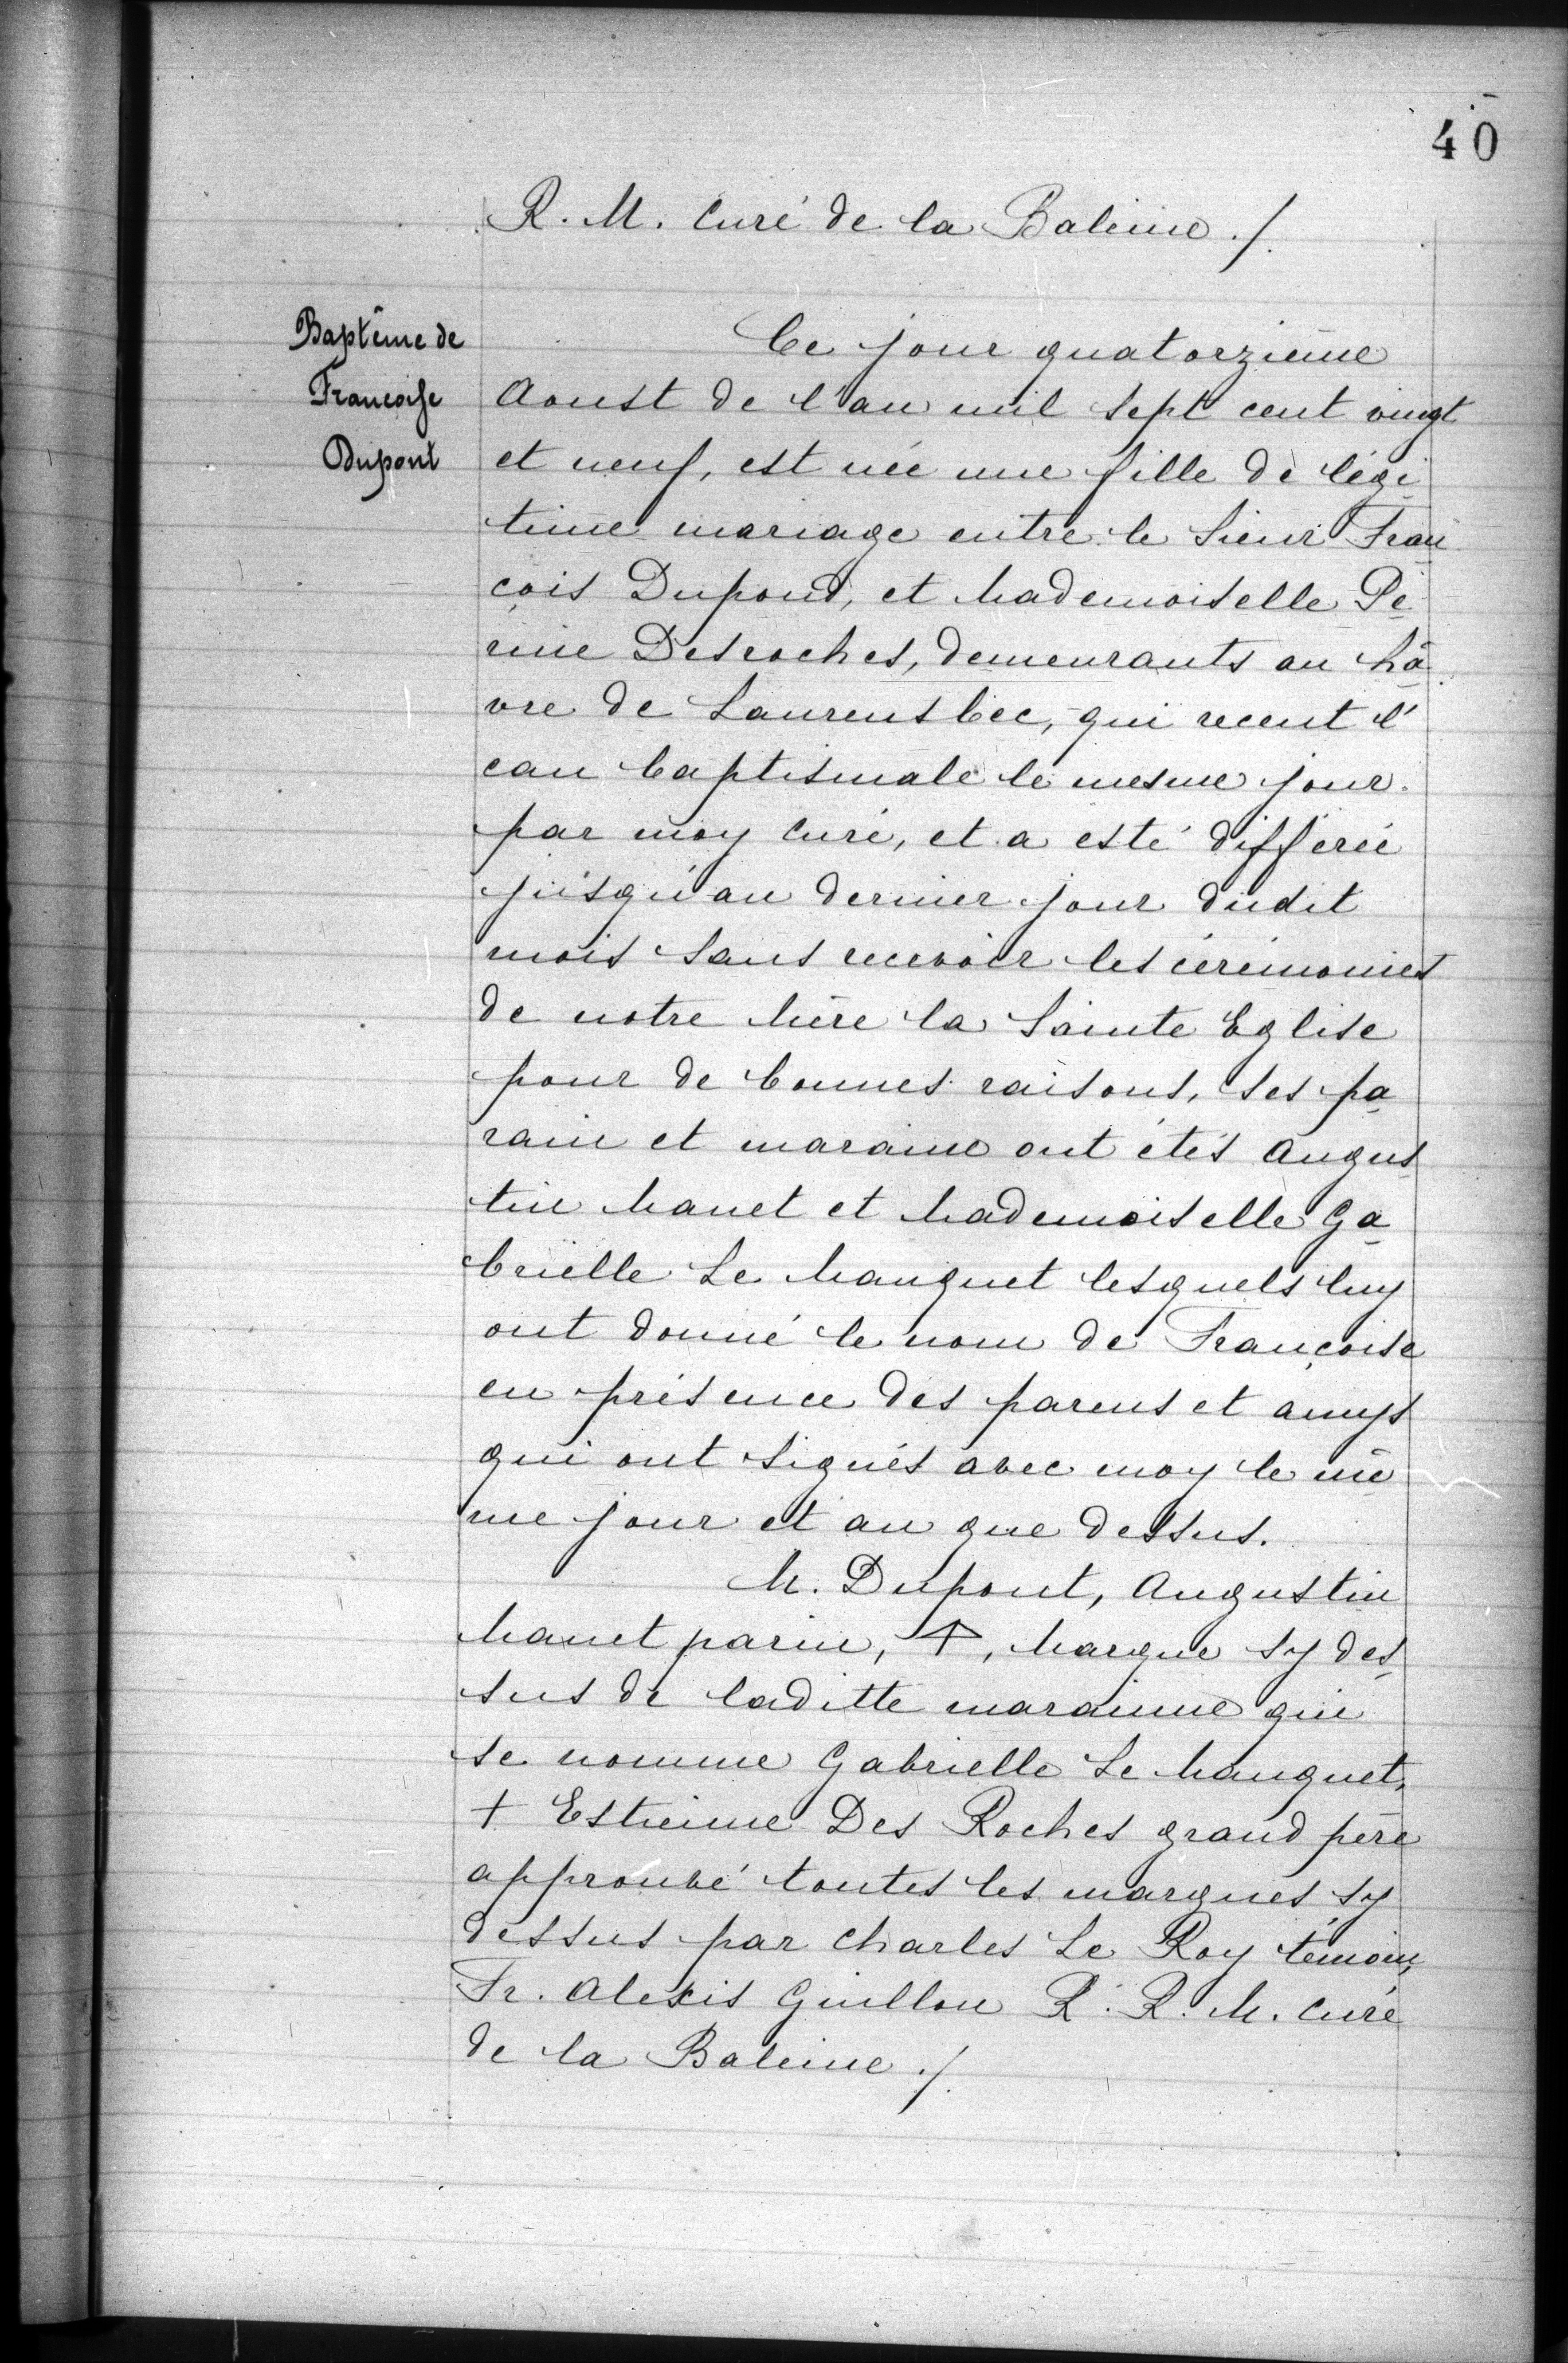 40
R. M. Curé de la Baleine ./.
Baptême de
Francoise
Dupont
Ce jour quatorzième
Aoust de l'an mil sept cent vingt
et neuf, est née une fille de légi
time mariage entre le Sieur Fran
çois Dupond, et Mademoiselle Pé
rine Desroches, demeurants au hâ
vre de Laurensbec, qui receut l'
eau baptismale le mesme jour
par moy Curé, et a esté différée
jusqu'au dernier jour dudit
mois sans recevoir les cérémonies
de notre Mère la Sainte Eglise
pour de bonnes raisons, ses pa
rain et maraine ont étés Augus
tin Manet et Mademoiselle Ga
brielle Le Manquet lesquels luy
ont donné le nom de Françoise
en présence des parens et amys
qui ont signés avec moy le mê
me jour et an que dessus.
M. Dupont, Augustin
Manet parin, +, Marque sy des
sus de laditte marainne qui
se nomme Gabrielle Le Manquet,
+ Estienne Des Roches grand père
approuvé toutes les marques sy
dessus par Charles Le Roy témoin,
Fr. Alexis Guillou R. R. M. Curé
de la Baleine ./.